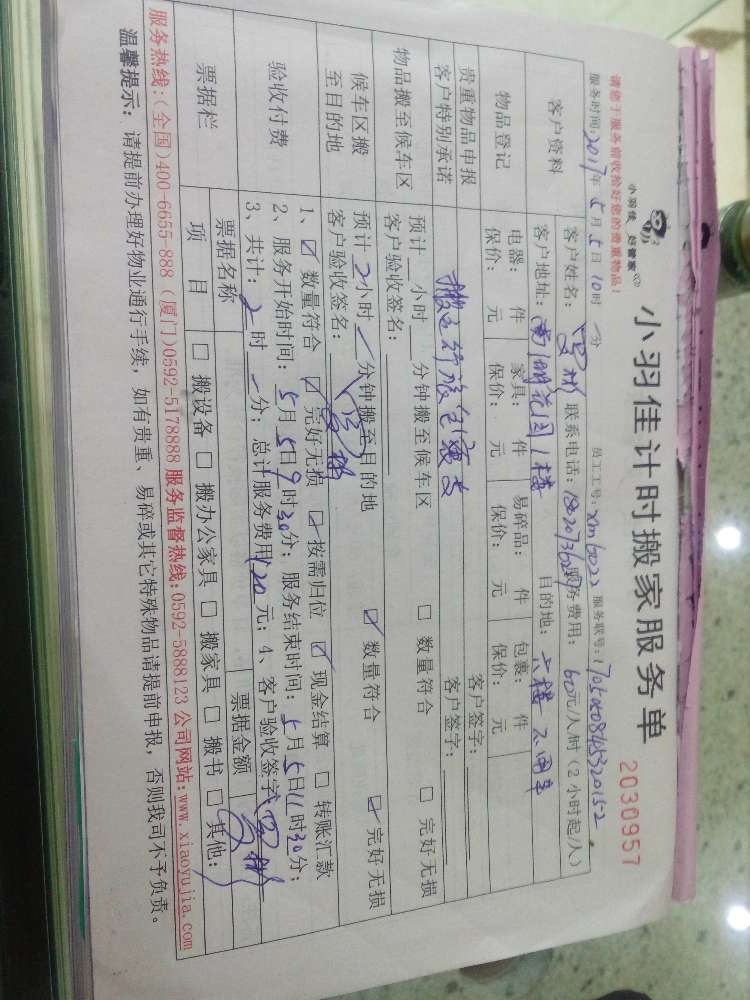 小羽佳 好管家
小羽佳计时搬家服务单
2030957
请您于服务前收拾好您的贵重物品！
服务时间: 2017年5月5日10时 分 员工工号: xm6022 服务联号:
客户资料
客户姓名: 联系电话: 服务费用: 60元/人/时(2小时起/人)
客户地址: 南湖花园1楼 目的地: 六楼
物品登记
电器: 件 家具: 件 易碎品: 件 包裹: 件
保价: 元 保价: 元 保价: 元 保价: 元
贵重物品申报
客户特别承诺
客户签字:
客户签字:
物品搬至候车区
预计 小时 分钟搬至候车区 □ 数量符合 □ 完好无损
客户验收签名:
候车区搬
至目的地
预计2小时 分钟搬至目的地 ☑ 数量符合 ☑ 完好无损
客户验收签名:
验收付费
1、☑ 数量符合 ☑ 完好无损 ☑ 按需归位 ☑ 现金结算 □ 转账汇款
2、服务开始时间: 5月5日9时30分; 服务结束时间: 5月5日11时30分;
3、共计: 2时 分; 总计服务费用120元; 4、客户验收签字
票据栏
票据名称 票据金额
项 目 □ 搬设备 □ 搬办公家具 □ 搬家具 □ 搬书 □ 其他:
服务热线:(全国)400-6655-888 (厦门)0592-5178888 服务监督热线:0592-5888123 公司网站:www.xiaoyujia.com
温馨提示: 请提前办理好物业通行手续，如有贵重、易碎或其它特殊物品请提前申报，否则我司不予负责。